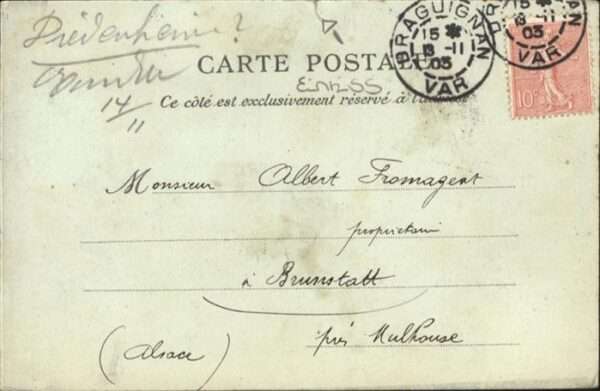 Riedenheim ?
14/11
CARTE POSTALE
Ce côté est exclusivement réservé à l'adresse
DRAGUIGNAN
15 * 
13 -11
03
VAR
15 *
13 -11
03
VAR
10c
Monsieur Albert Fromagent
propriétaire
à Brunstatt
près Mulhouse
(Alsace)